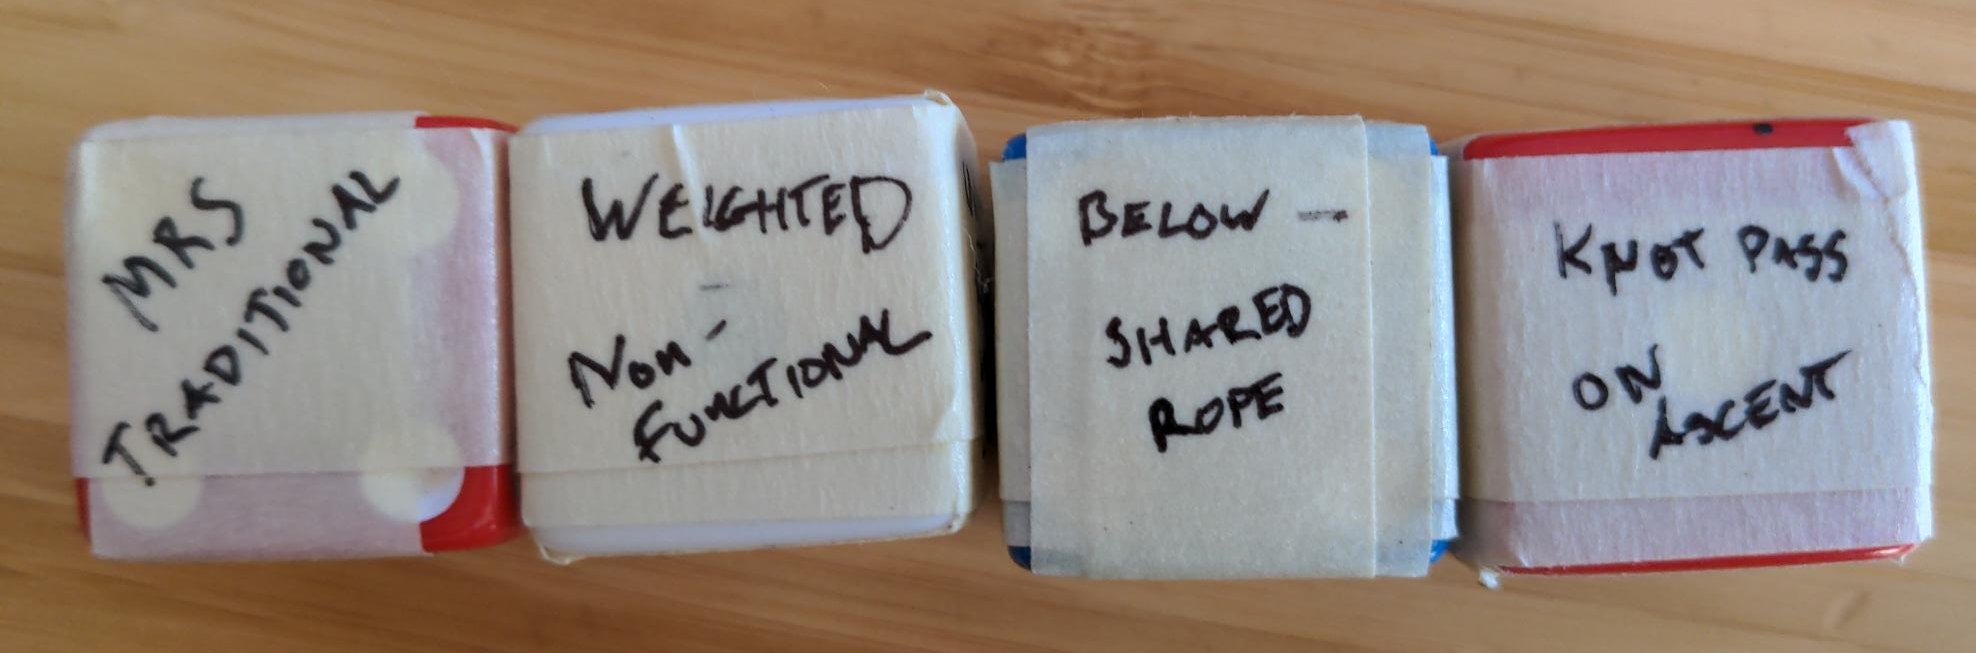 MRS
TRADITIONAL
WEIGHTED
-
NON-
FUNCTIONAL
BELOW -
SHARED
ROPE
KNOT PASS
ON
ASCENT